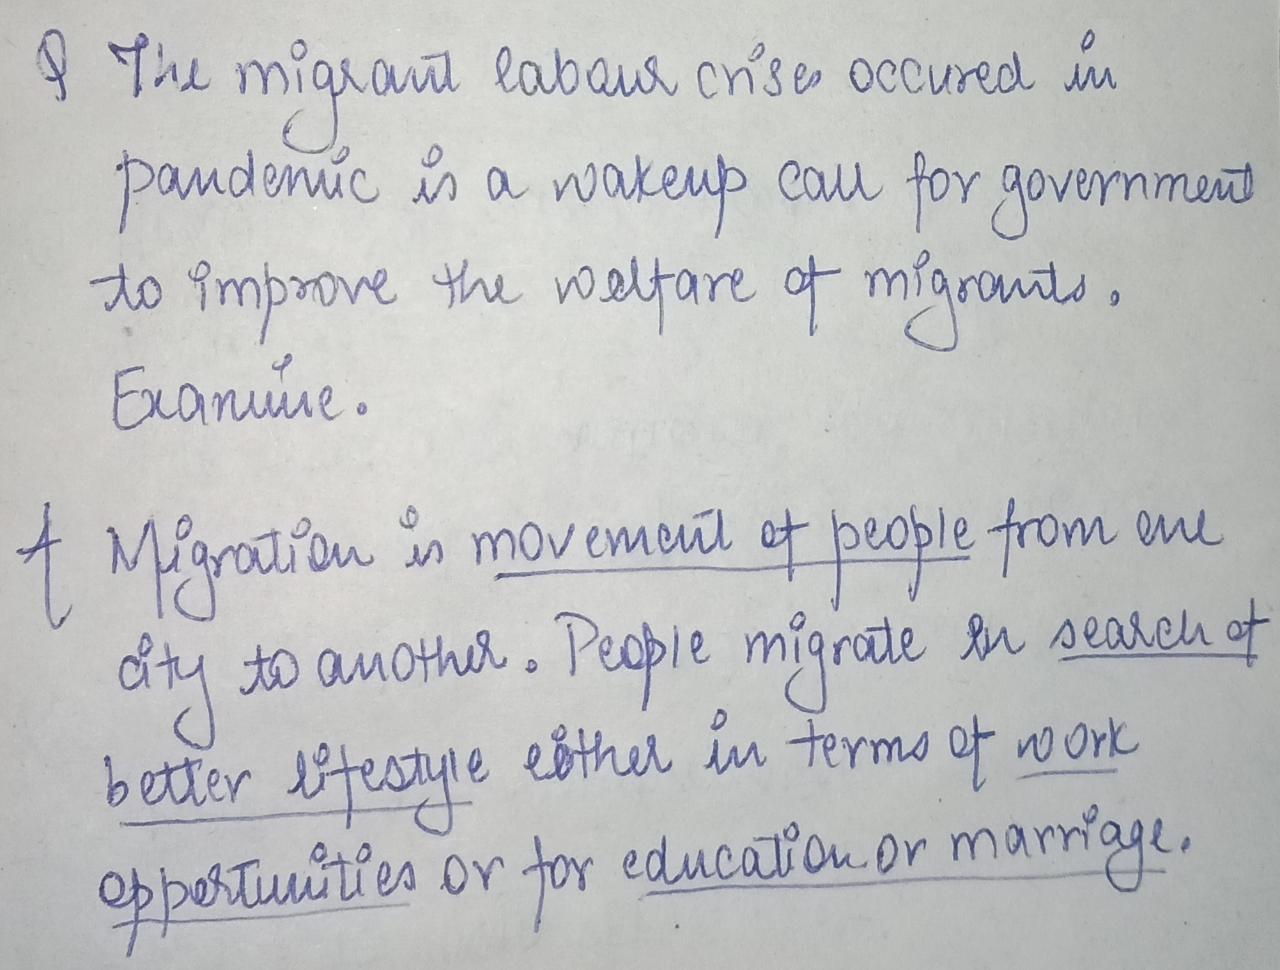 Q The migrant labour crises occured in
pandemic is a wakeup call for government
to improve the welfare of migrants.
Examine.
A Migration is movement of people from one
city to another. People migrate in search of
better lifestyle either in terms of work
opportunities or for education or marriage.